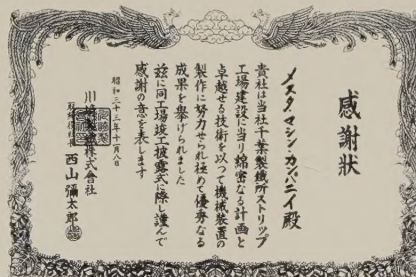 感謝狀
メスタ マシン・カンパニイ殿
貴社は当社千葉製鐵所ストリップ
工場建設に当り綿密なる計画と
卓越せる技術を以つて機械装置の
製作に努力せられ極めて優秀なる
成果を挙げられました
茲に同工場竣工披露式に際し謹んで
感謝の意を表します
昭和三十三年十一月八日
川崎製鐵株式會社
取締役社長 西山彌太郎